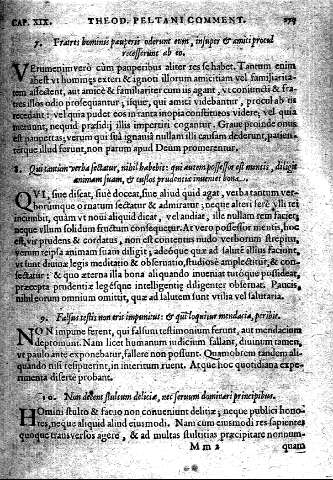 CAP. XIX. THEOD. PELTANI COMMENT. 279
7. Fratres hominis pauperis oderunt eum, insuper & amici procul
recesserunt ab eo.
VErumenimverò cum pauperibus aliter res se habet. Tantum enim
abest vt homines exteri & ignoti illorum amicitiam vel familiarita-
tem affectent, aut amicè & familiariter cum iis agant, vt coniuncti & fra-
tres illos odio prosequantur; iique, qui amici videbantur, procul ab iis
recedant: vel quia pudet eos in tanta inopia constitutos videre; vel quia
metuunt, nequid præsidij illis impertiri cogantur. Graue proinde onus
est paupertas; verum qui sua ignauia nullam illi causam dederunt, patien-
térque illud ferunt, non parum apud Deum promerentur.
8. Qui tantùm verba sectatur, nihil habebit: qui autem possessor est mentis, diligit
animam suam, & custos prudentiæ inueniet bona.
QVI, siue discat, siue doceat, siue aliud quid agat, verba tantum ver-
borumque ornatum sectatur & admiratur; neque alteri ferè vlli rei
incumbit, quàm vt noui aliquid dicat, vel audiat, ille nullam rem faciet,
neque vllum solidum fructum consequetur. At vero possessor mentis, hoc
est, vir prudens & cordatus, non est contentus nudo verborum strepitu,
verùm reipsa animam suam diligit; adeoque quæ ad salutē illius faciunt,
vt sunt diuinæ legis meditatio & obseruatio, studiosè amplectitur, & con-
sectatur: & quò æterna illa bona aliquando inueniat tutóque possideat,
præcepta prudentiæ legésque intelligentię diligenter obseruat. Paucis,
nihil eorum omnium omittit, quæ ad salutem sunt vtilia vel salutaria.
9. Falsus testis non erit impunitus: & qui loquitur mendacia, peribit.
NON impunè ferent, qui falsum testimonium ferunt, aut mendacium
depromunt. Nam licet humanum iudicium fallant, diuinum tamen,
vt paulo ante exponebatur, fallere non possunt. Quamobrem tandem ali-
quando nisi resipuerint, in interitum ruent. Atque hoc quotidiana expe-
rimenta disertè probant.
10. Non decent stultum deliciæ, nec seruum dominari principibus.
HOmini stulto & fatuo non conueniunt delitiæ; neque publici hono-
res, neque aliquid aliud eiusmodi. Nam cum eiusmodi res sapientes
quoque transuersos agere, & ad multas stultitias præcipitare nonnun-
M m 2 quam